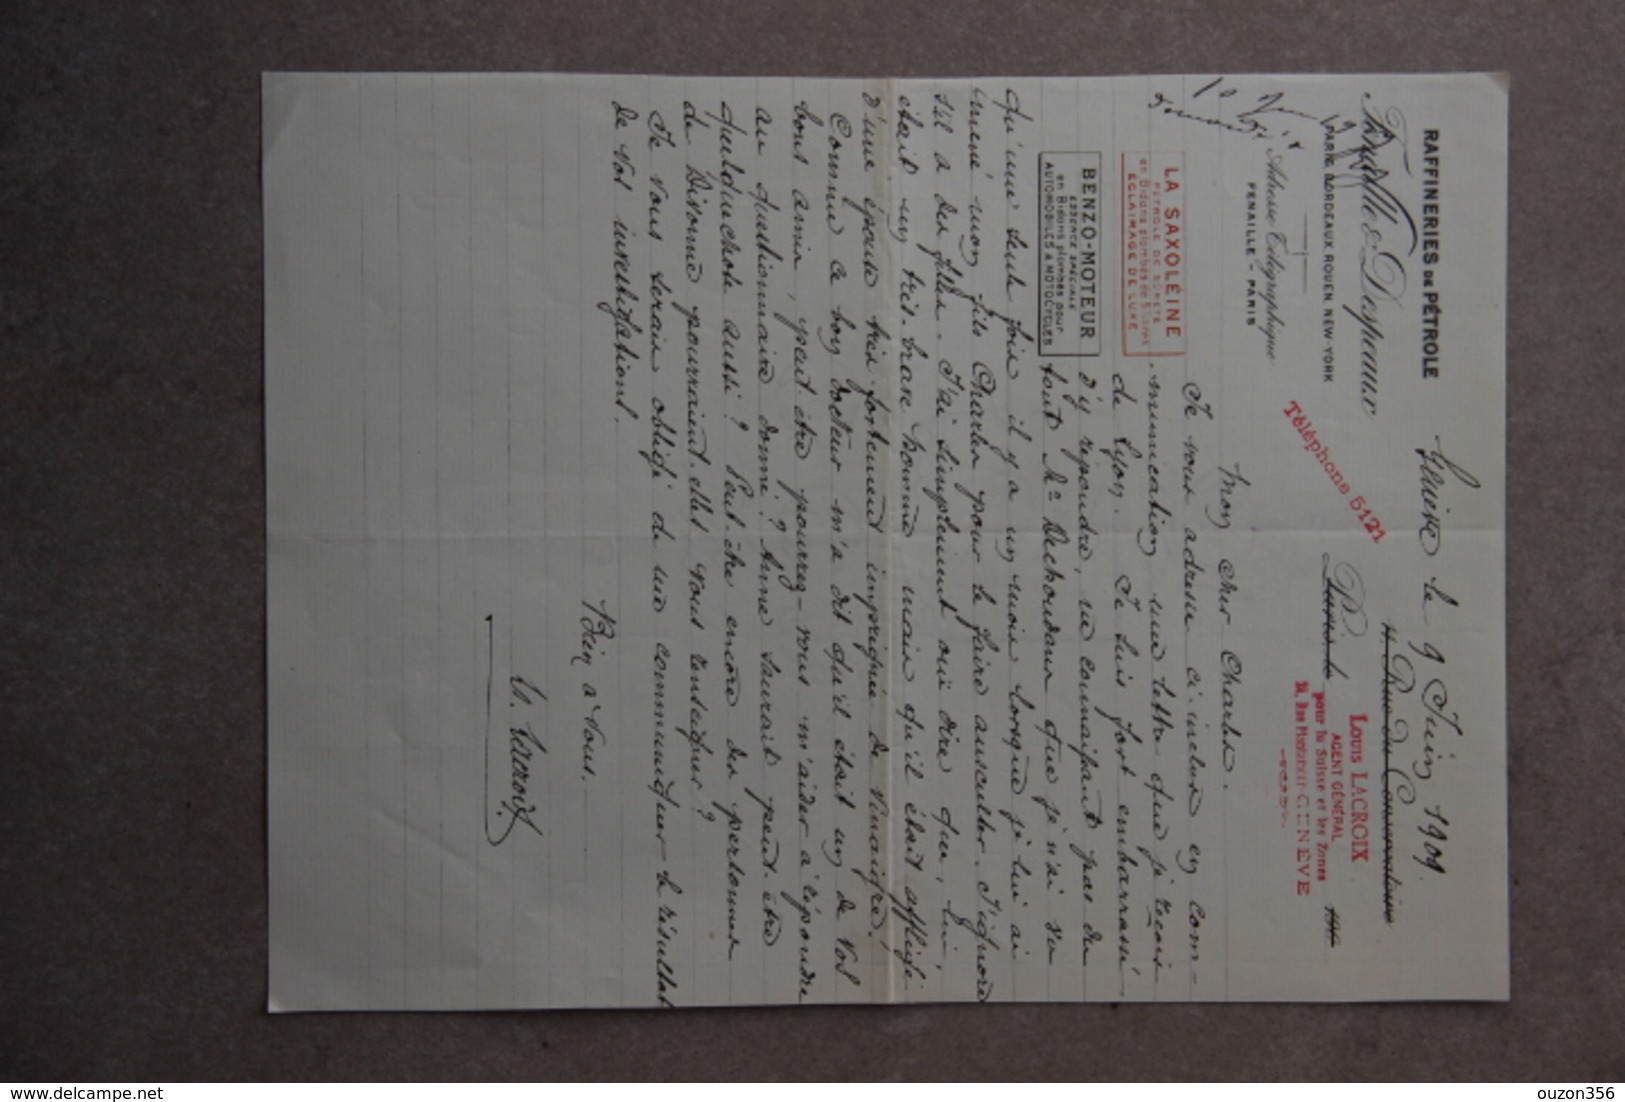 RAFFINERIES DE PÉTROLE
Fenaille & Despeaux
PARIS BORDEAUX ROUEN NEW-YORK
Adresse Télégraphique
FENAILLE - PARIS
LA SAXOLÉINE
PÉTROLE DE SÛRETÉ
en Bidons plombés de 5 Litres
ÉCLAIRAGE DE LUXE
BENZO-MOTEUR
ESSENCE SPÉCIALE
en Bidons plombés pour
AUTOMOBILES & MOTOCYCLES
Téléphone 5121
le 9 Juin 1909
Rue du Conservatoire
Paris le
LOUIS LACROIX
AGENT GÉNÉRAL
pour la Suisse et les Zones
GENÈVE
Mon cher Charles.
Je vous adresse ci-inclus en com-
munication une lettre que je reçois
de Lyon. Je suis fort embarrassé
d'y répondre, ne connaissant pas du
tout Mr Dechoudans que je n'ai vu
qu'une seule fois il y a un mois lorsque je lui ai
mené mon fils Charles pour le faire ausculter. J'ignore
s'il a des filles. J'ai simplement ouï dire que, lui,
était un très-brave homme mais qu'il était affligé
d'une épouse très-fortement imprégnée de vinaigre.
Comme ce bon docteur m'a dit qu'il était un de vos
bons amis, peut-être pourrez-vous m'aider à répondre
au questionnaire donné? Anne saurait peut-être
quelquechose aussi? Peut-être encore des personnes
de Divonne pourraient-elles vous renseigner?
Je vous serais obligé de me communiquer le résultat
de vos investigations.
Bien à vous.
L. Lacroix
ouzon356